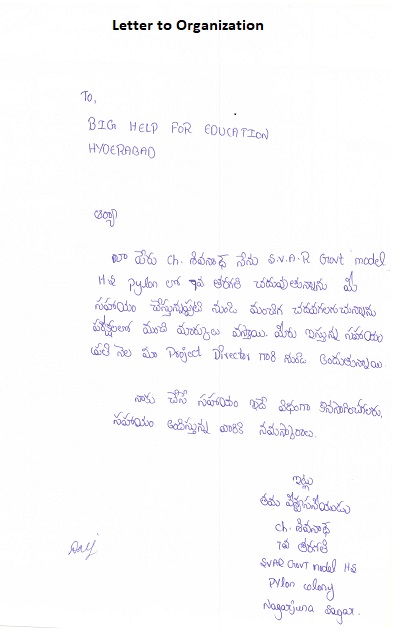 Letter to Organization
To,
BIG HELP FOR EDUCATION
HYDERABAD
ఆర్యా
నా పేరు Ch. శివనాథ్ నేను S.V.A.R Govt model
HS Pylon లో 7వ తరగతి చదువుతున్నాను మీ
సహాయం చేస్తున్నప్పటి నుండి మంచిగ చదవగలుగుచున్నాను
పరీక్షలలో మంచి మార్కులు వస్తాయి. మీరు ఇస్తున్న సహాయం
ప్రతి నెల మా Project Director గారి నుండి అందుతున్నాయి.
నాకు చేసే సహాయం ఇదే విధంగా కొనసాగించగలరు.
సహాయం అందిస్తున్న వారికి నమస్కారాలు.
ఇట్లు
తమ విశ్వాసనీయుడు
Ch. శివనాథ్
7వ తరగతి
SVAR Govt model HS
Pylon colony
Nagarjuna Sagar.